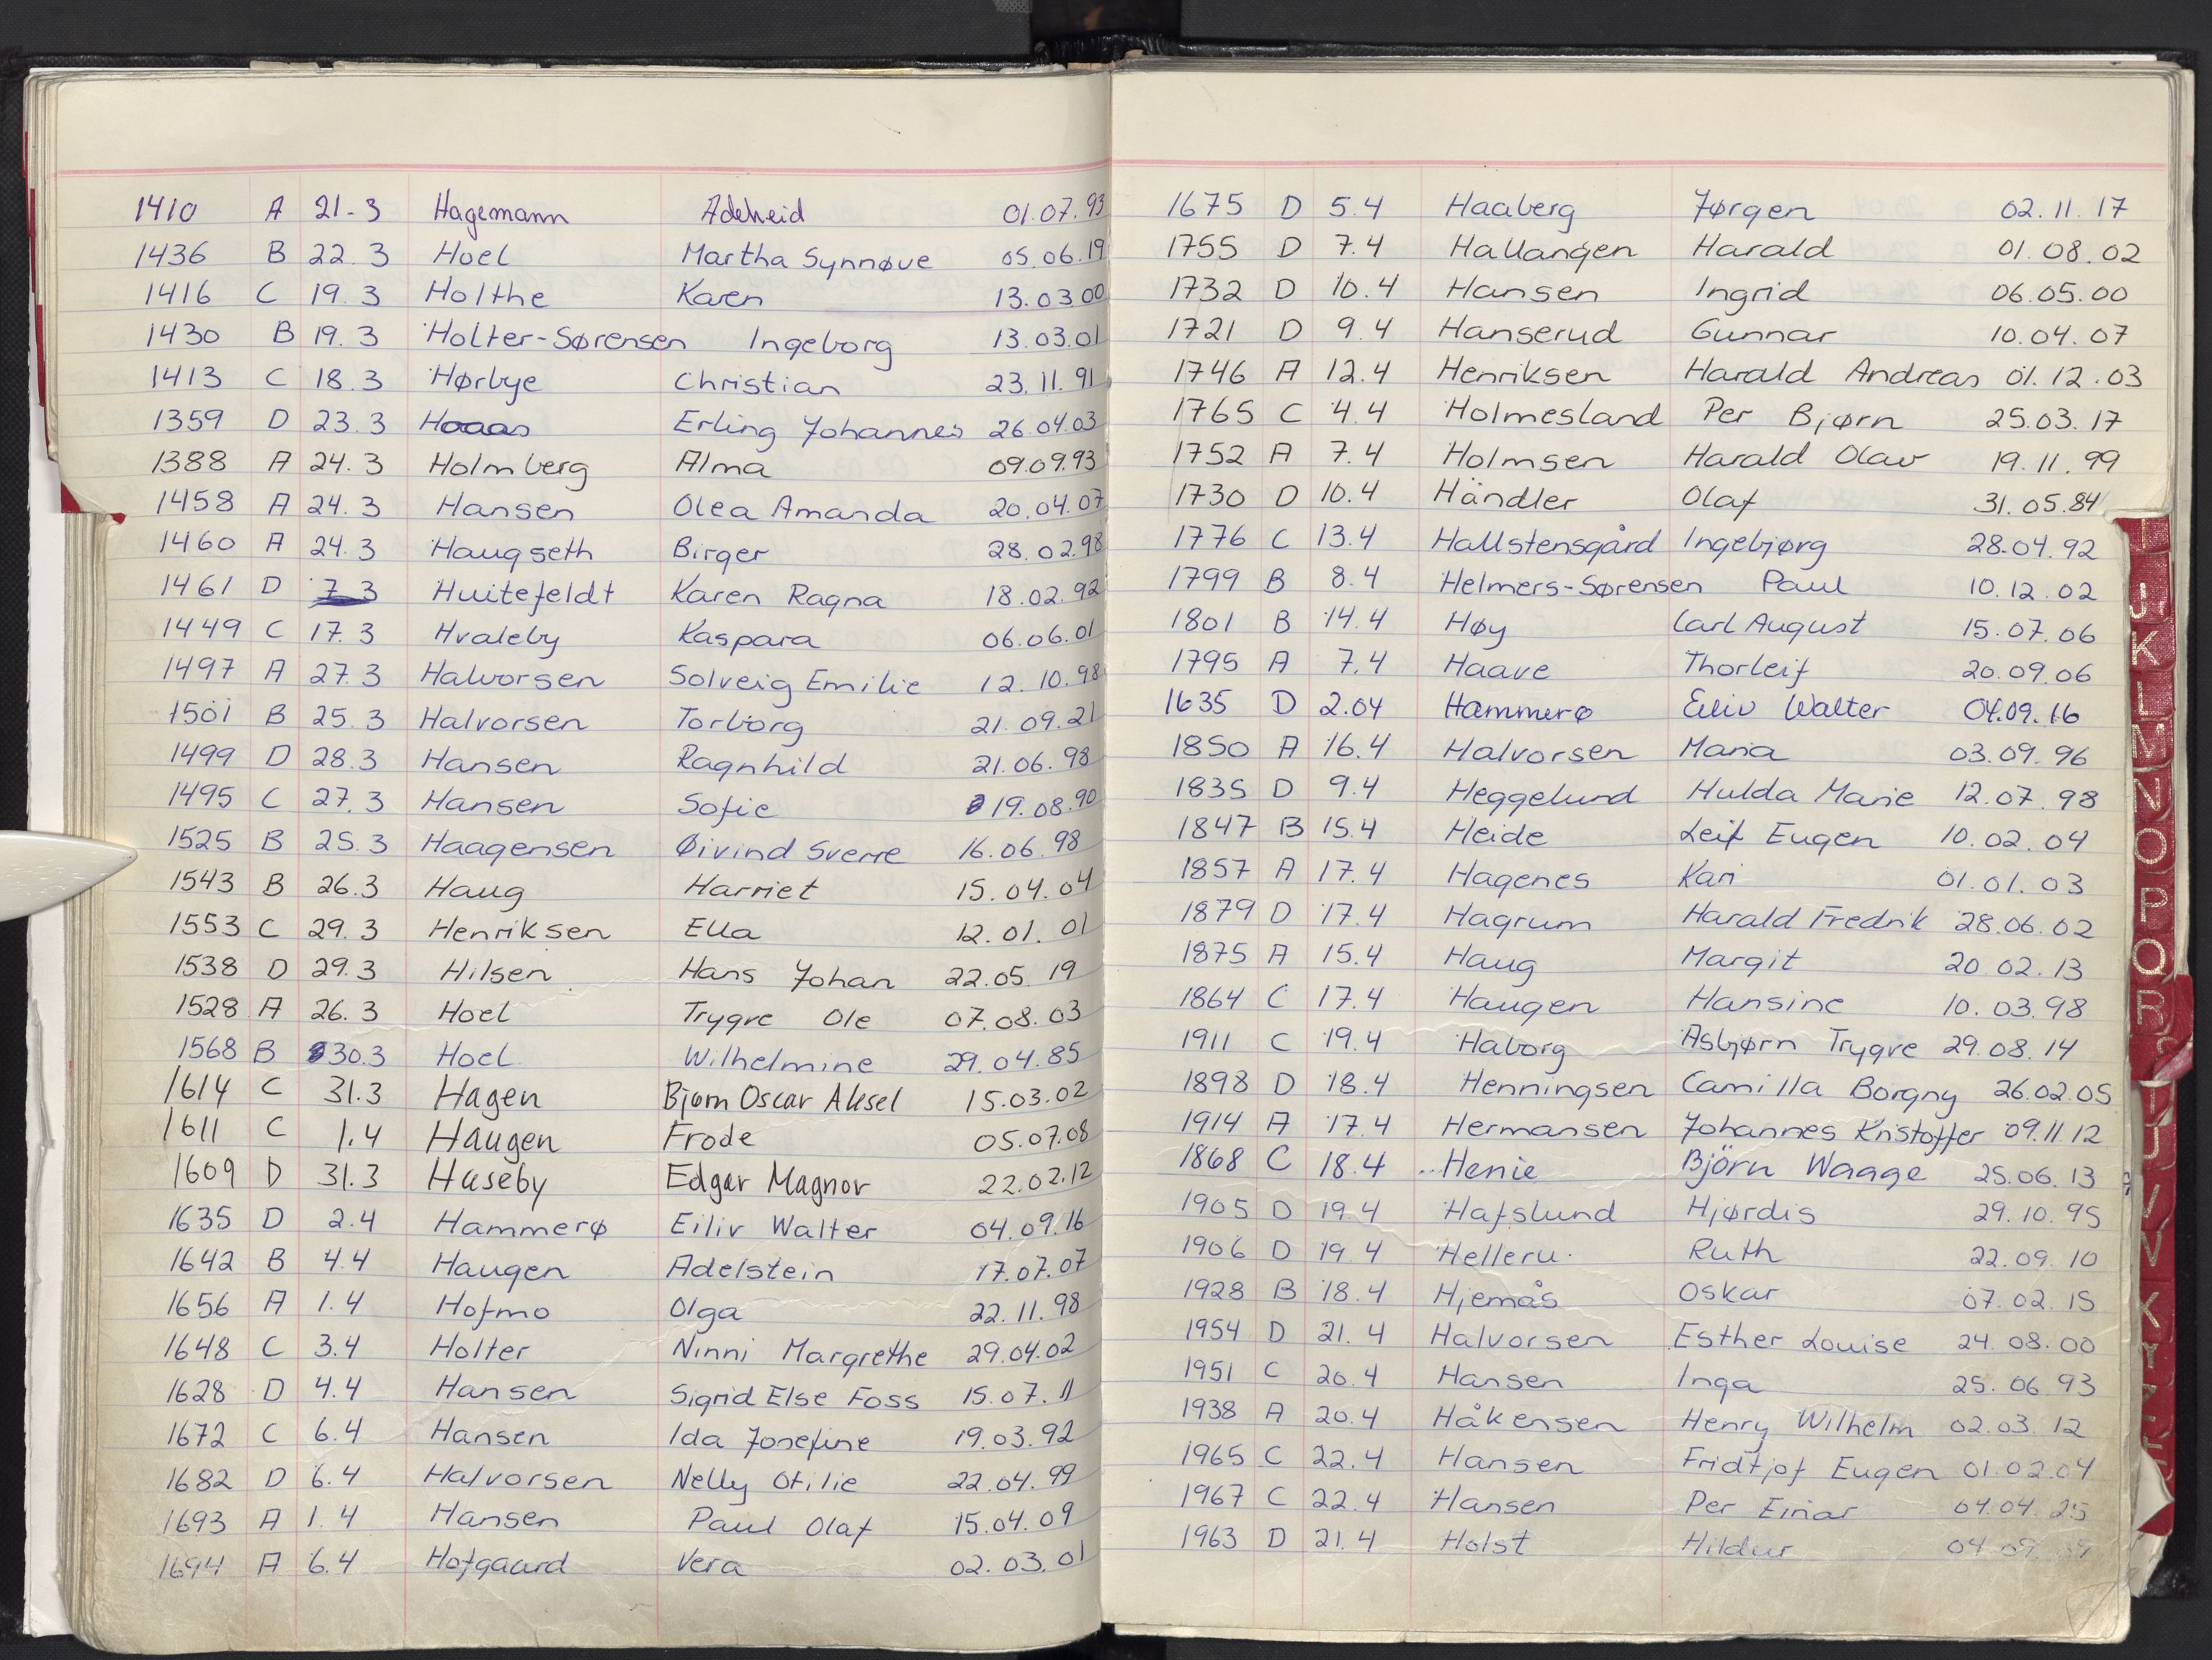 1410 A 21-3 Hagemann Adelheid 01.07.93
1436 B 22.3 Hoel Martha Synnøve 05.06.19
1416 C 19.3 Holthe Karen 13.03.00
1430 B 19.3 Holter-Sørensen Ingeborg 13.03.01
1413 C 18.3 Hørbye Christian 23.11.91
1359 D 23.3 Erling Johannes 26.04.03
1388 A 24.3 Holmberg Alma 09.09.93
1458 A 24.3 Hansen Olea Amanda 20.04.07
1460 A 24.3 Haugseth Birger 28.02.98
1461 D 7.3 Huitefeldt Karen Ragna 18.02.92
1449 C 17.3 Hvaleby Kaspara 06.06.01
1497 A 27.3 Halvorsen Solveig Emilie 12.10.98
1501 B 25.3 Halvorsen Torborg 21.09.21
1499 D 28.3 Hansen Ragnhild 21.06.98
1495 C 27.3 Hansen Sofie 19.08.90
1525 B 25.3 Haagensen Øivind Sverre 16.06.98
1543 B 26.3 Haug Harriet 15.04.04
1553 C 29.3 Henriksen Ella 12.01.01
1538 D 29.3 Hilsen Hans Johan 22.05.19
1528 A 26.3 Hoel Trygve Ole 07.08.03
1568 B 30.3 Hoel Wilhelmine 29.04.85
1614 C 31.3 Hagen Bjørn Oscar Aksel 15.03.02
1611 C 1.4 Haugen Frode 05.07.08
1609 D 31.3 Huseby Edgar Magnor 22.02.12
1635 D 2.4 Hammerø Eiliv Walter 04.09.16
1642 B 4.4 Haugen Adelstein 17.07.07
1656 A 1.4 Hofmo Olga 22.11.98
1648 C 3.4 Holter Ninni Margrethe 29.04.02
1628 D 4.4 Hansen Sigrid Else Foss 15.07.11
1672 C 6.4 Hansen Ida Josefine 19.03.92
1682 D 6.4 Halvorsen Nelly Otilie 22.04.99
1693 A 1.4 Hansen Paul Olaf 15.04.09
1694 A 6.4 Hofgaard Vera 02.03.01
1675 D 5.4 Haaberg Jørgen 02.11.17
1755 D 7.4 Hallangen Harald 01.08.02
1732 D 10.4 Hansen Ingrid 06.05.00
1721 D 9.4 Hanserud Gunnar 10.04.07
1746 A 12.4 Henriksen Harald Andreas 01.12.03
1765 C 4.4 Holmesland Per Bjørn 25.03.17
1752 A 7.4 Holmsen Harald Olav 19.11.99
1730 D 10.4 Händler Olaf 31.05.84
1776 C 13.4 Hallstensgård Ingebjørg 28.04.92
1799 B 8.4 Helmers-Sørensen Paul 10.12.02
1801 B 14.4 Høy Carl August 15.07.06
1795 A 7.4 Haave Thorleif 20.09.06
1635 D 2.04 Hammerø Eiliv Walter 04.09.16
1850 A 16.4 Halvorsen Maria 03.09.96
1835 D 9.4 Heggelund Hulda Marie 12.07.98
1847 B 15.4 Heide Leif Eugen 10.02.04
1857 A 17.4 Hagenes Kari 01.01.03
1879 D 17.4 Hagrum Harald Fredrik 28.06.02
1875 A 15.4 Haug Margit 20.02.13
1864 C 17.4 Haugen Hansine 10.03.98
1911 C 19.4 Haborg Asbjørn Trygve 29.08.14
1898 D 18.4 Henningsen Camilla Borgny 26.02.05
1914 A 17.4 Hermansen Johannes Kristoffer 09.11.12
1868 C 18.4 Henie Björn Waage 25.06.13
1905 D 19.4 Hafslund Hjørdis 29.10.95
1906 D 19.4 Helleru Ruth 22.09.10
1928 B 18.4 Hjemås Oskar 07.02.15
1954 D 21.4 Halvorsen Esther Louise 24.08.00
1951 C 20.4 Hansen Inga 25.06.93
1938 A 20.4 Håkensen Henry Wilhelm 02.03.12
1965 C 22.4 Hansen Fridtjof Eugen 01.02.04
1967 C 22.4 Hansen Per Einar 04.04.25
1963 D 21.4 Holst Hildur 04.09
I
J
K
L
M
N
O
P
Q
R
T
U
V